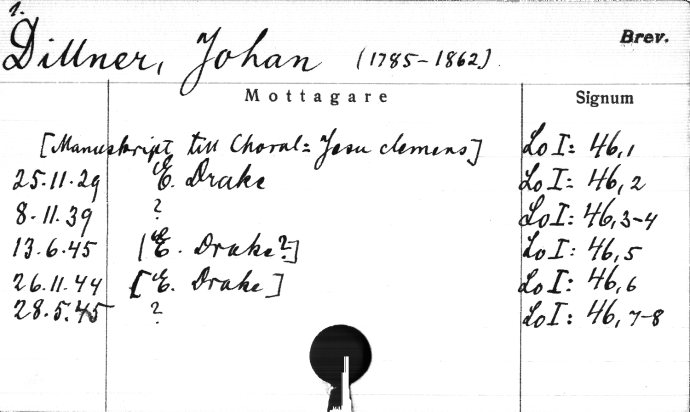 1.
Dillner, Johan (1785-1862).
Brev.
Mottagare Signum
[Manuskript till Choral: Jesu clemens] LoI: 46,1
25.11.29 E. Drake LoI: 46,2
8.11.39 ? LoI: 46,3-4
13.6.45 [E. Drake?] LoI: 46,5
26.11.44 [E. Drake] LoI: 46,6
28.5.45 ? LoI: 46,7-8